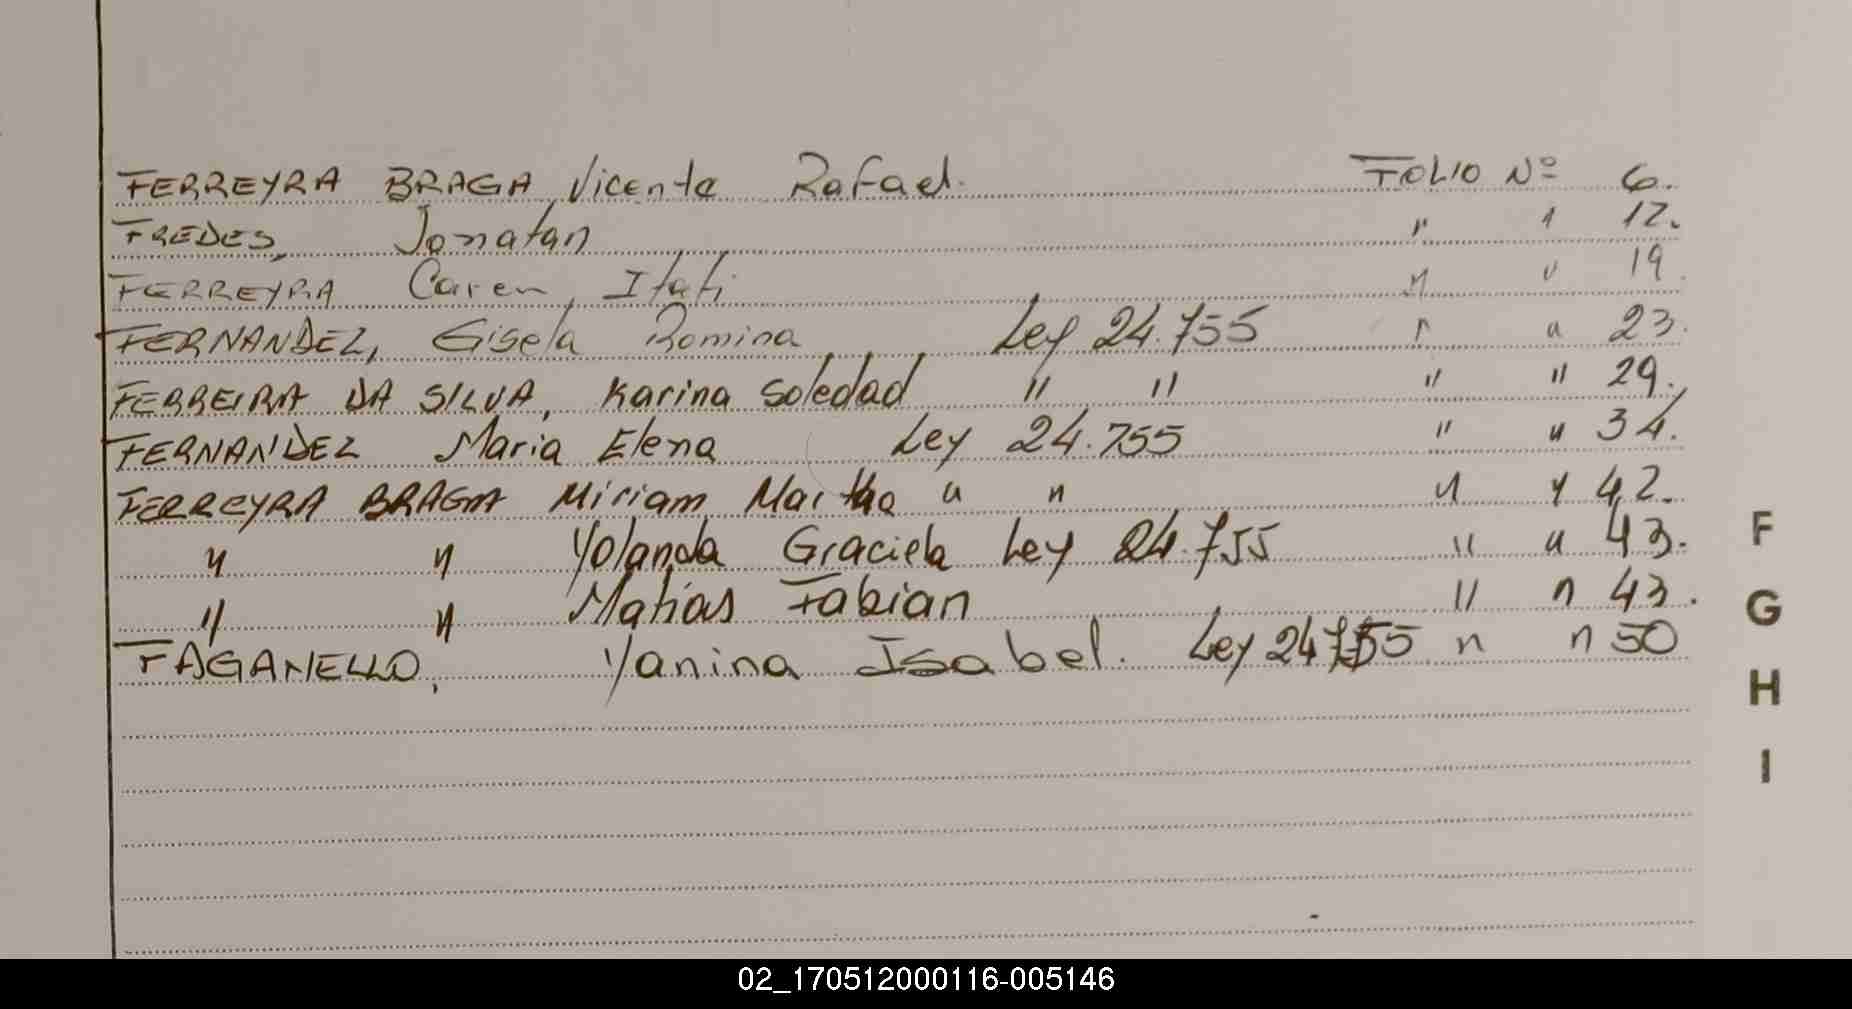 FERREYRA BRAGA Vicente Rafael. FOLIO Nº 6.
FREDES, Jonatan " " 12.
FERREYRA Caren, Itati " " 19.
FERNANDEZ, Gisela Romina Ley 24.755 " " 23.
FERREIRA DA SILVA, Karina Soledad " " " " 29.
FERNANDEZ Maria Elena Ley 24.755 " " 34.
FERREYRA BRAGA Miriam Martha " " " " 42.
" " Yolanda Graciela Ley 24.755 " " 43.
" " Matias Fabian " " 43.
FAGANELLO, Yanina Isabel. Ley 24755 " " 50
F
G
H
I
02_170512000116-005146